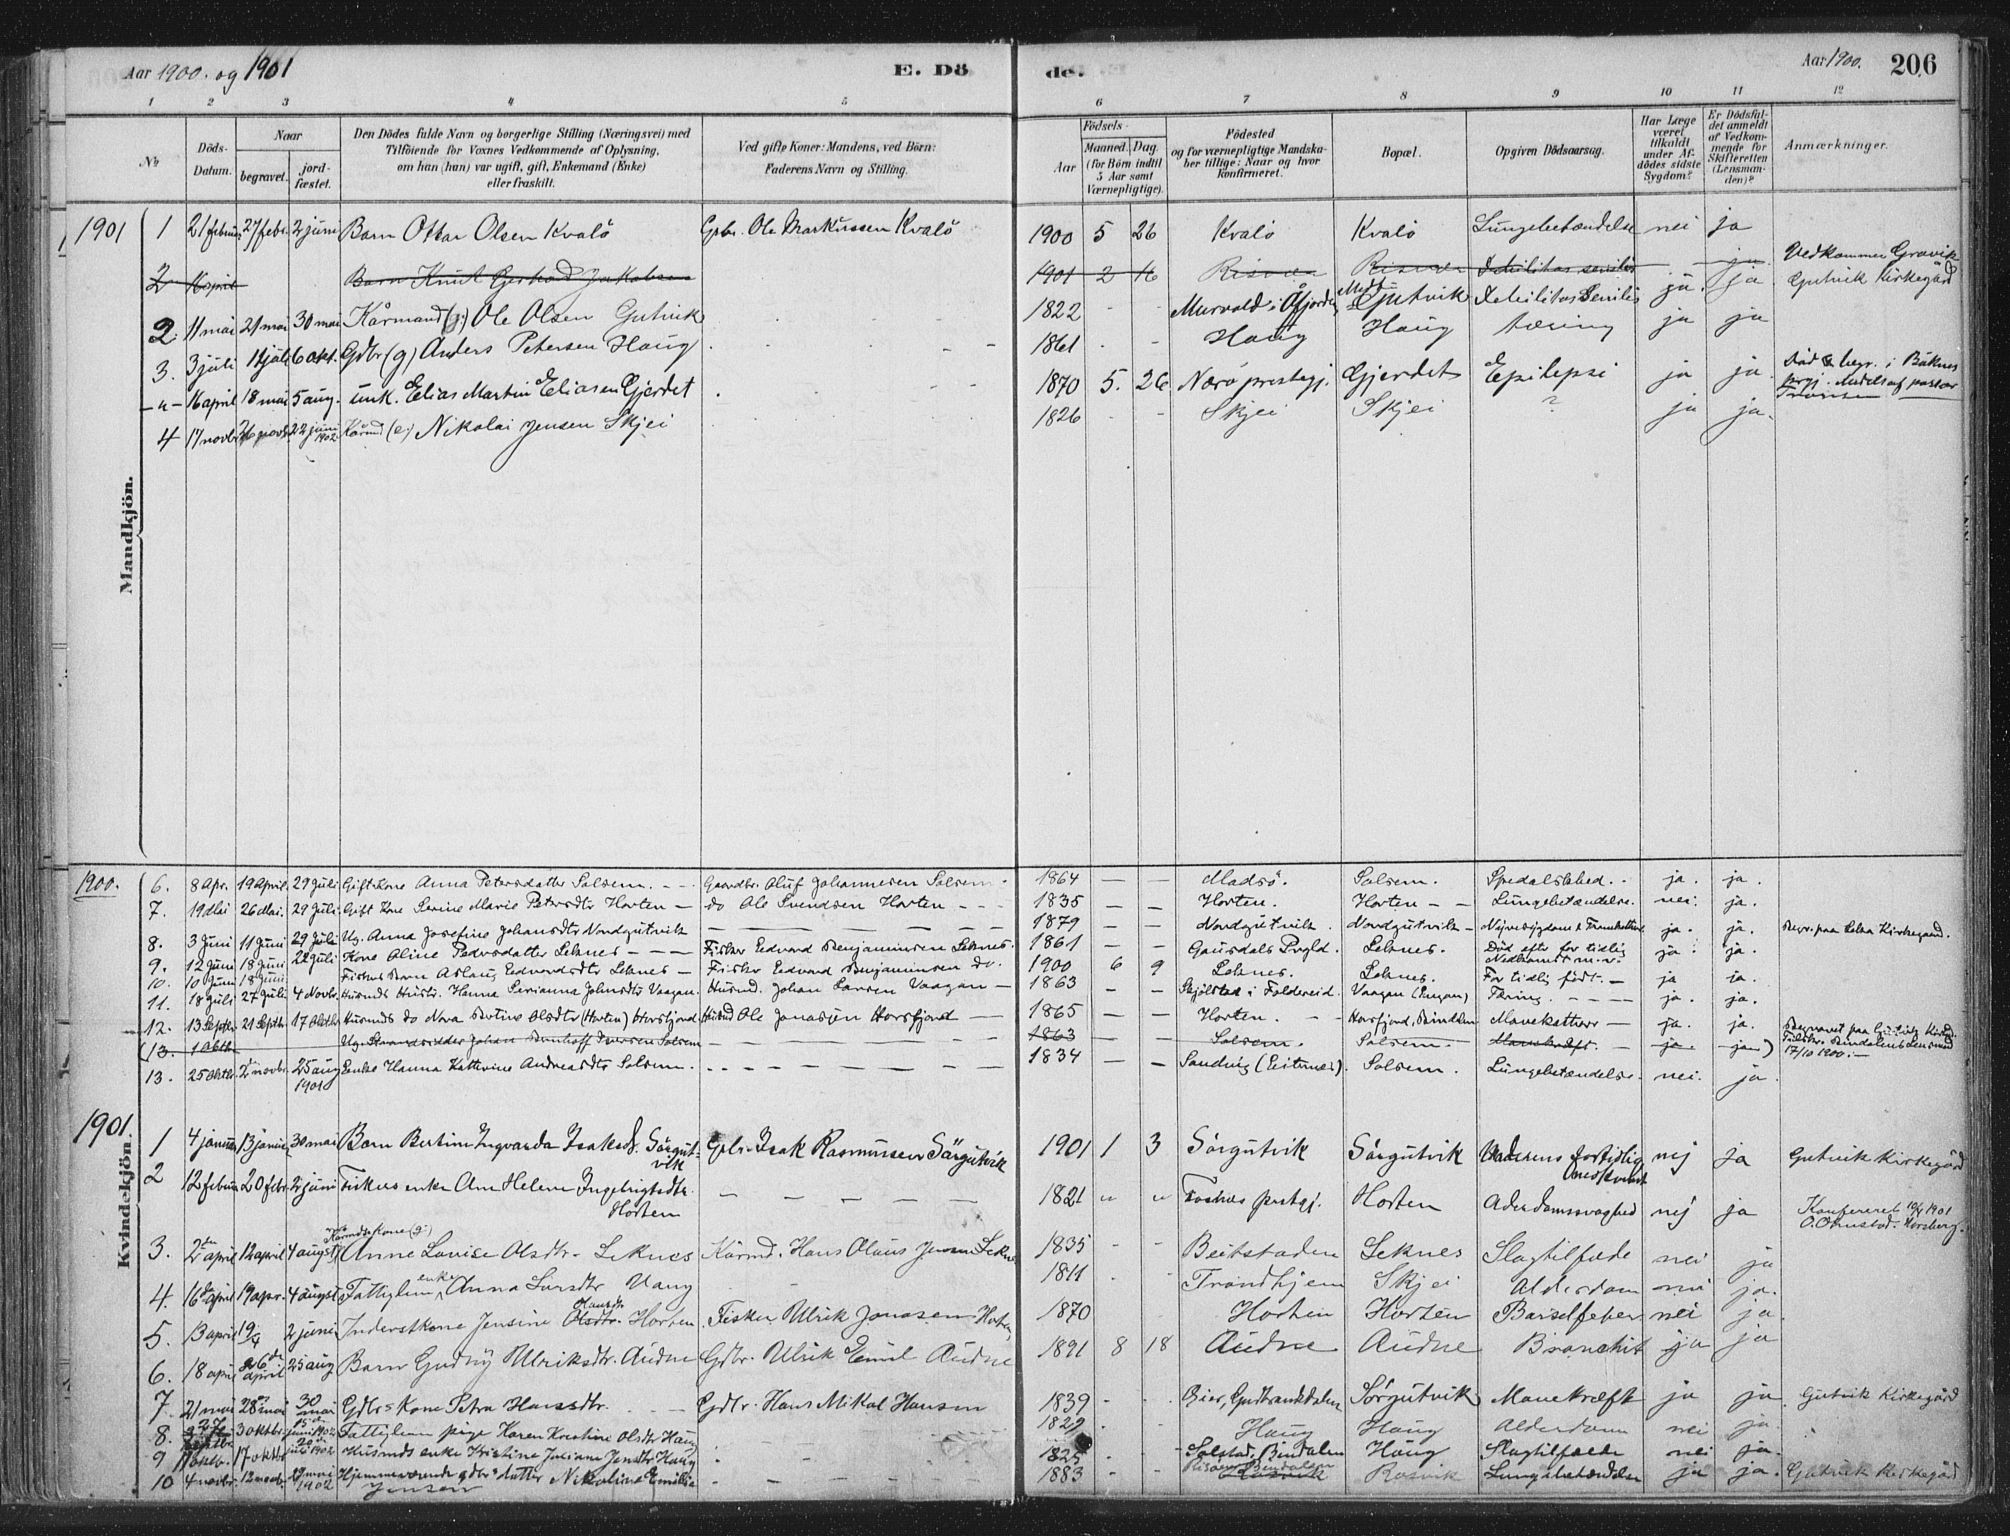 Aar 1900. og 1901 E. Dö de. Aar 1900. 206
1 2 3 4 5 6 7 8 9 10 11 12
No
Döds-Datum.
Naar
begravet. jord-fæstet.
Den Dödes fulde Navn og borgerlige Stilling (Næringsvei) med
Tilföiende for Voxnes Vedkommende af Oplysning,
om han (hun) var ugift, gift, Enkemand (Enke)
eller fraskilt.
Ved gifte Koner: Mandens, ved Börn:
Faderens Navn og Stilling.
Födsels-
Aar Maaned. Dag.
(for Börn indtil
5 Aar samt
Værnepligtige).
Födested
og for værnepligtige Mandska-
ber tillige: Naar og hvor
konfirmeret.
Bopæl.
Opgiven Dödsaarsag.
Har Læge
været
tilkaldt
under Af-
dödes sidste
Sygdom?
Er Dödsfal-
det anmeldt
af Vedkom-
mende for
Skifteretten
(Lensman-
den)?
Anmærkninger.
Mandkjön.
1901 1 21 februar 27 febr. 2 juni Barn Ottar Olsen Kvalö Gbr. Ole Markussen Kvalö 1900 5 26 Kvalö Kvalö Lungebetændelse nei ja
2 16 april Barn Knut Gerhard Jakobsen 1901 2 16 Risvær Risvær Debilitas senilis ja Vedkommer Gravik
2. 11 mai 21 mai 30 mai Kårmand (g.) Ole Olsen Gutvik 1822 - - Murvold i Åfjorden Gutvik Debilitas Senilis ja ja Gutvik Kirkegård
3. 3 juli 11 juli 6 okt. Gdbr (g) Anders Petersen Haug 1861 Haug Haug tæring ja ja
-"- 16 april 18 mai 5 aug. unk. Elias Martin Eliasen Gjerdet 1870 5. 26 Nærö prestegj. Gjerdet Epilepsi ja ja Död & begr. i Båknes prgj. Meddelt af pastor
4 17 novbr. 26 novbr. 22 juni 1902 Kårmd (e.) Nikolai Jensen Skjei 1826 - - Skjei Skjei ? ja ja.
Kvindekjön.
1900. 6. 8 Apr. 19 April. 29 Juli Gift Kone Anna Petersdatter Solsem. Gaardbr. Oluf Johannesen Solsem. 1864 — — Madsö. Solsem. Spedalskhed. ja. ja.
7. 19 Mai 26 Mai. 29 Juli Gift Kone Serine Marie Petersdtr Horten — do Ole Svendsen Horten 1835 — — Horten. Horten — Lungebetændelse. nei. ja.
8. 3 Juni 11 Juni 29 Juli Ug. Anna Josefine Johansdtr Nordgutvik 1879 — — Nordgutvik. Nordgutvik Nyresygdom & ja. ja. Begr. paa Leka Kirkegaard.
9. 12 Juni 18 Juni 22 Juli Kone Oline Pedersdatter Leknes Fisker Edvard Benjaminsen Leknes. 1861 — — Gausdals Prgld. Leknes. Död efter for tidlig Nedkomst m.v. ja. ja.
10. 10 Juni 18 Juni. Fiskers Barn Aslaug Edvardsdtr Leknes — Fisker Edvard Benjaminsen do. 1900 6 9 Leknes. Leknes. For tidlig födt. — ja ja.
11. 18 Juli 27 Juli 4 Novbr. Husmds Hustr. Hanna Serianna Johnsdtr Vaagan. Husmd. Johan Larsen Vaagan — 1863 — — i Foldereid. Vaagan Tæring. ja. ja.
12. 13 Septr. 21 Septbr. 17 Oktbr. Husmds do Nora Bertine Olsdtr (Horten) Horsfjord Husmd Ole Jonassen Horsfjord — 1865 — — Horten. Horsfjord, Bindalen Mavekatharr — ja. ja.
(13. 1 Oktb. Ug. Johan Bernhoff Iversen Solsem 1863 — — Solsem. Solsem. Mavekræft. — ja — ja) Begravet paa Gutvik Kirkg. 17/10 1900. —
13. 25 Oktb. 2 novbr. 25 aug 1901 Enke Hanna Kathrine Andreasdtr Solsem. 1834 — Sandvig (Leiternæs). Solsem. Lungebetændelse. nei. ja.
1901 1 4 januar 13 januar 30 mai Barn Bertine Ingvarda Isaksdtr. Sörgutvik Gbr. Isak Rasmussen Sörgutvik 1901 1 3 Sörgutvik Sörgutvik Moderens fortidlig nedkomst nej ja Gutvik Kirkegård
2 12 februar 20 febr. 2 juni Fiskers enke Ane Helene Ingebrigtsdtr. Horten 1821 " " Fosnes prstgj. Horten Alderdomssvaghed nej ja Konfereret 10/4 1901
3. 2 april 12 april 4 august Kårmds Kone (g.) Anne Lovise Olsdtr. Leknes Kårmd. Hans Olaus Jensen Leknes 1835 - - Beitstaden Leknes Slagtilfælde nei ja
4. 16 april 19 apr. 4 august Fattiglem enke Anna Larsdtr Haug 1811 - - Trondhjem Skjei Alderdom nei ja.
5. 13 april 19/4 2 juni Inderstkone Jensine Olsdtr. Hansdtr. Horten Fisker Ulrik Jonasen Horten 1870 Horten Horten Barselfeber nei ja
6. 18 april 26 april 25 aug Barn Gudny Ulriksdtr. Audne Gdbr. Ulrik Emil Audne 1891 8 18 Audne Audne Bronchit ja ja
7. 21 mai 28 mai 30 mai Gdbrs Kone Petra Hansdtr. Gdbr. Hans Mikal Hansen 1839 - - Gudbrandsdalen Sörgutvik Mavekræft ja ja Gutvik Kirkegård
8. 27 septbr 3 oktbr. 15 juni 1902 Fattiglem pige Karen Kristine Olsdtr Haug 1829 - Haug Haug Alderdom nei ja.
9 11 oktb. 17 oktbr 20 juli 1902 Husmds enke Kristine Juliane Jensdtr Haug 1825 - Solstad, Bindalen Haug Slagtilfælde nei ja.
10 4 novbr. 12 novb. mai 1902 Hjemmeværende gdbr. datter Nikoline Emilie Jensen 1883 - Bindalen Rosvik Lungebetændelse ja ja. Gutvik Kirkegård